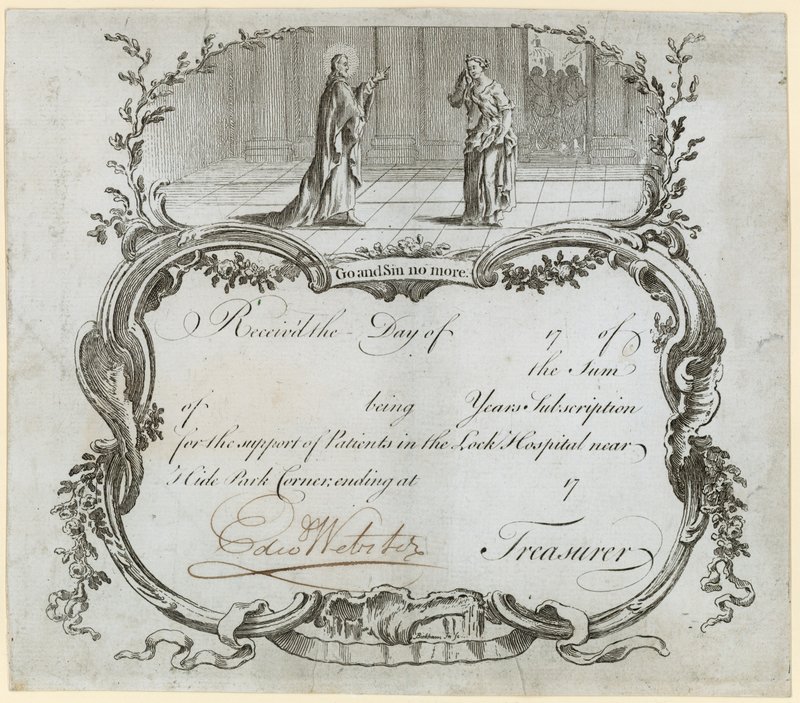 Go and Sin no more.
Receiv'd the Day of 17 of
the Sum
of being Years Subscription
for the support of Patients in the Lock Hospital near
Hide Park Corner; ending at 17
Edwd Webster Treasurer
Bickham